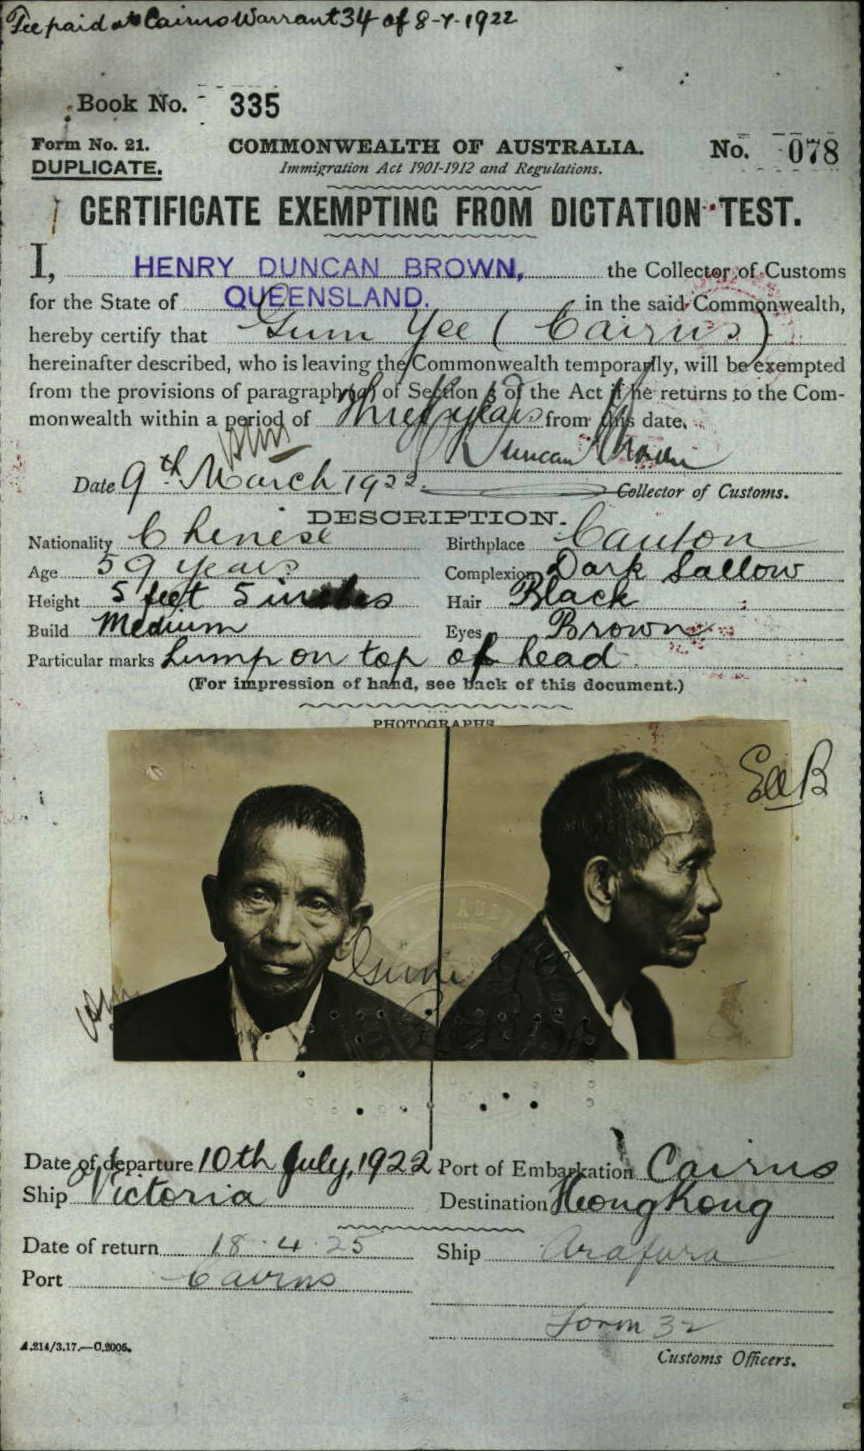 Fee paid at Cairns Warrant 34 of 8-7-1922
Book No. 335
Form No. 21. COMMONWEALTH OF AUSTRALIA. No. 078
DUPLICATE. Immigration Act 1901-1912 and Regulations.
CERTIFICATE EXEMPTING FROM DICTATION TEST.
I, HENRY DUNCAN BROWN, the Collector of Customs
for the State of QUEENSLAND. in the said Commonwealth,
hereby certify that Gum Yee (Cairns)
hereinafter described, who is leaving the Commonwealth temporarily, will be exempted
from the provisions of paragraph (a) of Section 3 of the Act if he returns to the Com-
monwealth within a period of Three years from this date.
Duncan Brown
Date 9th March 1922. Collector of Customs.
DESCRIPTION.
Nationality Chinese Birthplace Canton
Age 59 years Complexion Dark Sallow
Height 5 feet 5 inches Hair Black
Build Medium Eyes Brown
Particular marks Lump on top of head
(For impression of hand, see back of this document.)
PHOTOGRAPHS
Gum Yee
Cairns
Date of departure 10th July, 1922 Port of Embarkation Cairns
Ship Victoria Destination Hong Kong
Date of return 18.4.25 Ship Arafura
Port Cairns
Form 32
A.214/3.17.—C.2005. Customs Officers.